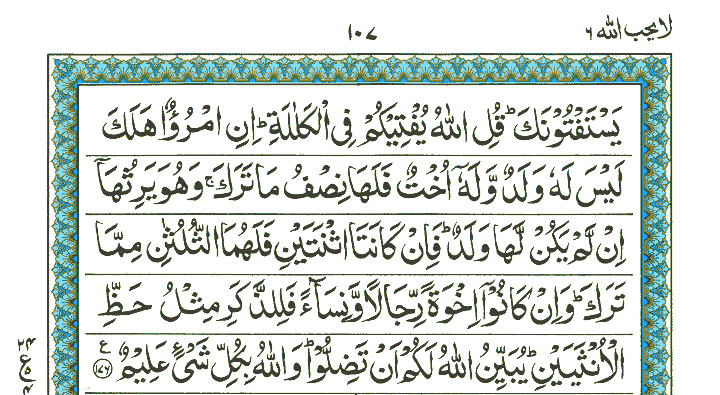 لا يحب الله ٦
١٠٧
يَسْتَفْتُوْنَكَ ؕ قُلِ اللّٰهُ يُفْتِيْكُمْ فِى الْكَلٰلَةِ ؕ اِنِ امْرُؤٌا هَلَكَ
لَيْسَ لَهٗ وَلَدٌ وَّلَهٗۤ اُخْتٌ فَلَهَا نِصْفُ مَا تَرَكَ ۚ وَهُوَ يَرِثُهَاۤ
اِنْ لَّمْ يَكُنْ لَّهَا وَلَدٌ ؕ فَاِنْ كَانَتَا اثْنَتَيْنِ فَلَهُمَا الثُّلُثٰنِ مِمَّا
تَرَكَ ؕ وَاِنْ كَانُوْۤا اِخْوَةً رِّجَالًا وَّنِسَآءً فَلِلذَّكَرِ مِثْلُ حَظِّ
الْاُنْثَيَيْنِ ؕ يُبَيِّنُ اللّٰهُ لَكُمْ اَنْ تَضِلُّوْا ؕ وَاللّٰهُ بِكُلِّ شَىْءٍ عَلِيْمٌ ﴿۱۷۶﴾ ع
۲۴
ع
۵
۴